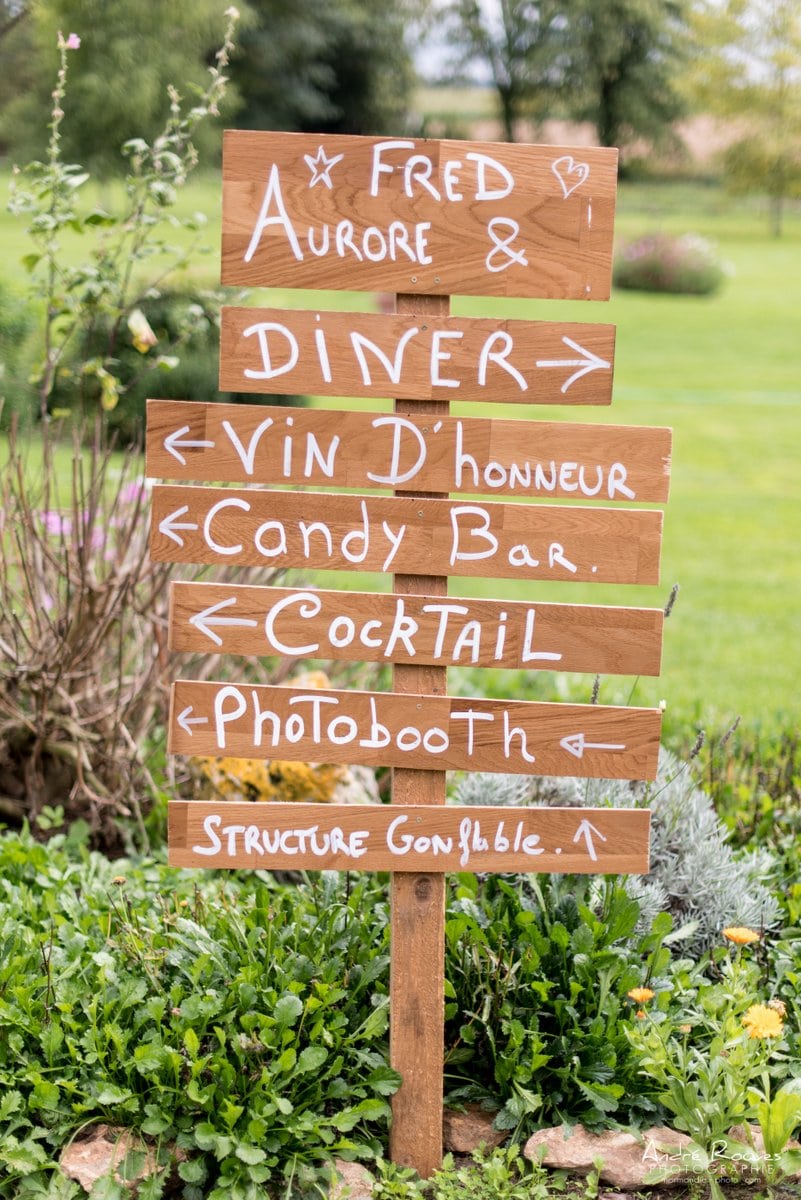 Fred
Aurore &
Diner →
← Vin D'honneur
← Candy Bar.
← Cocktail
← Photobooth ←
Structure Gonflable. ↑
André Roaves
PHOTOGRAPHIE
normandie-photo.com